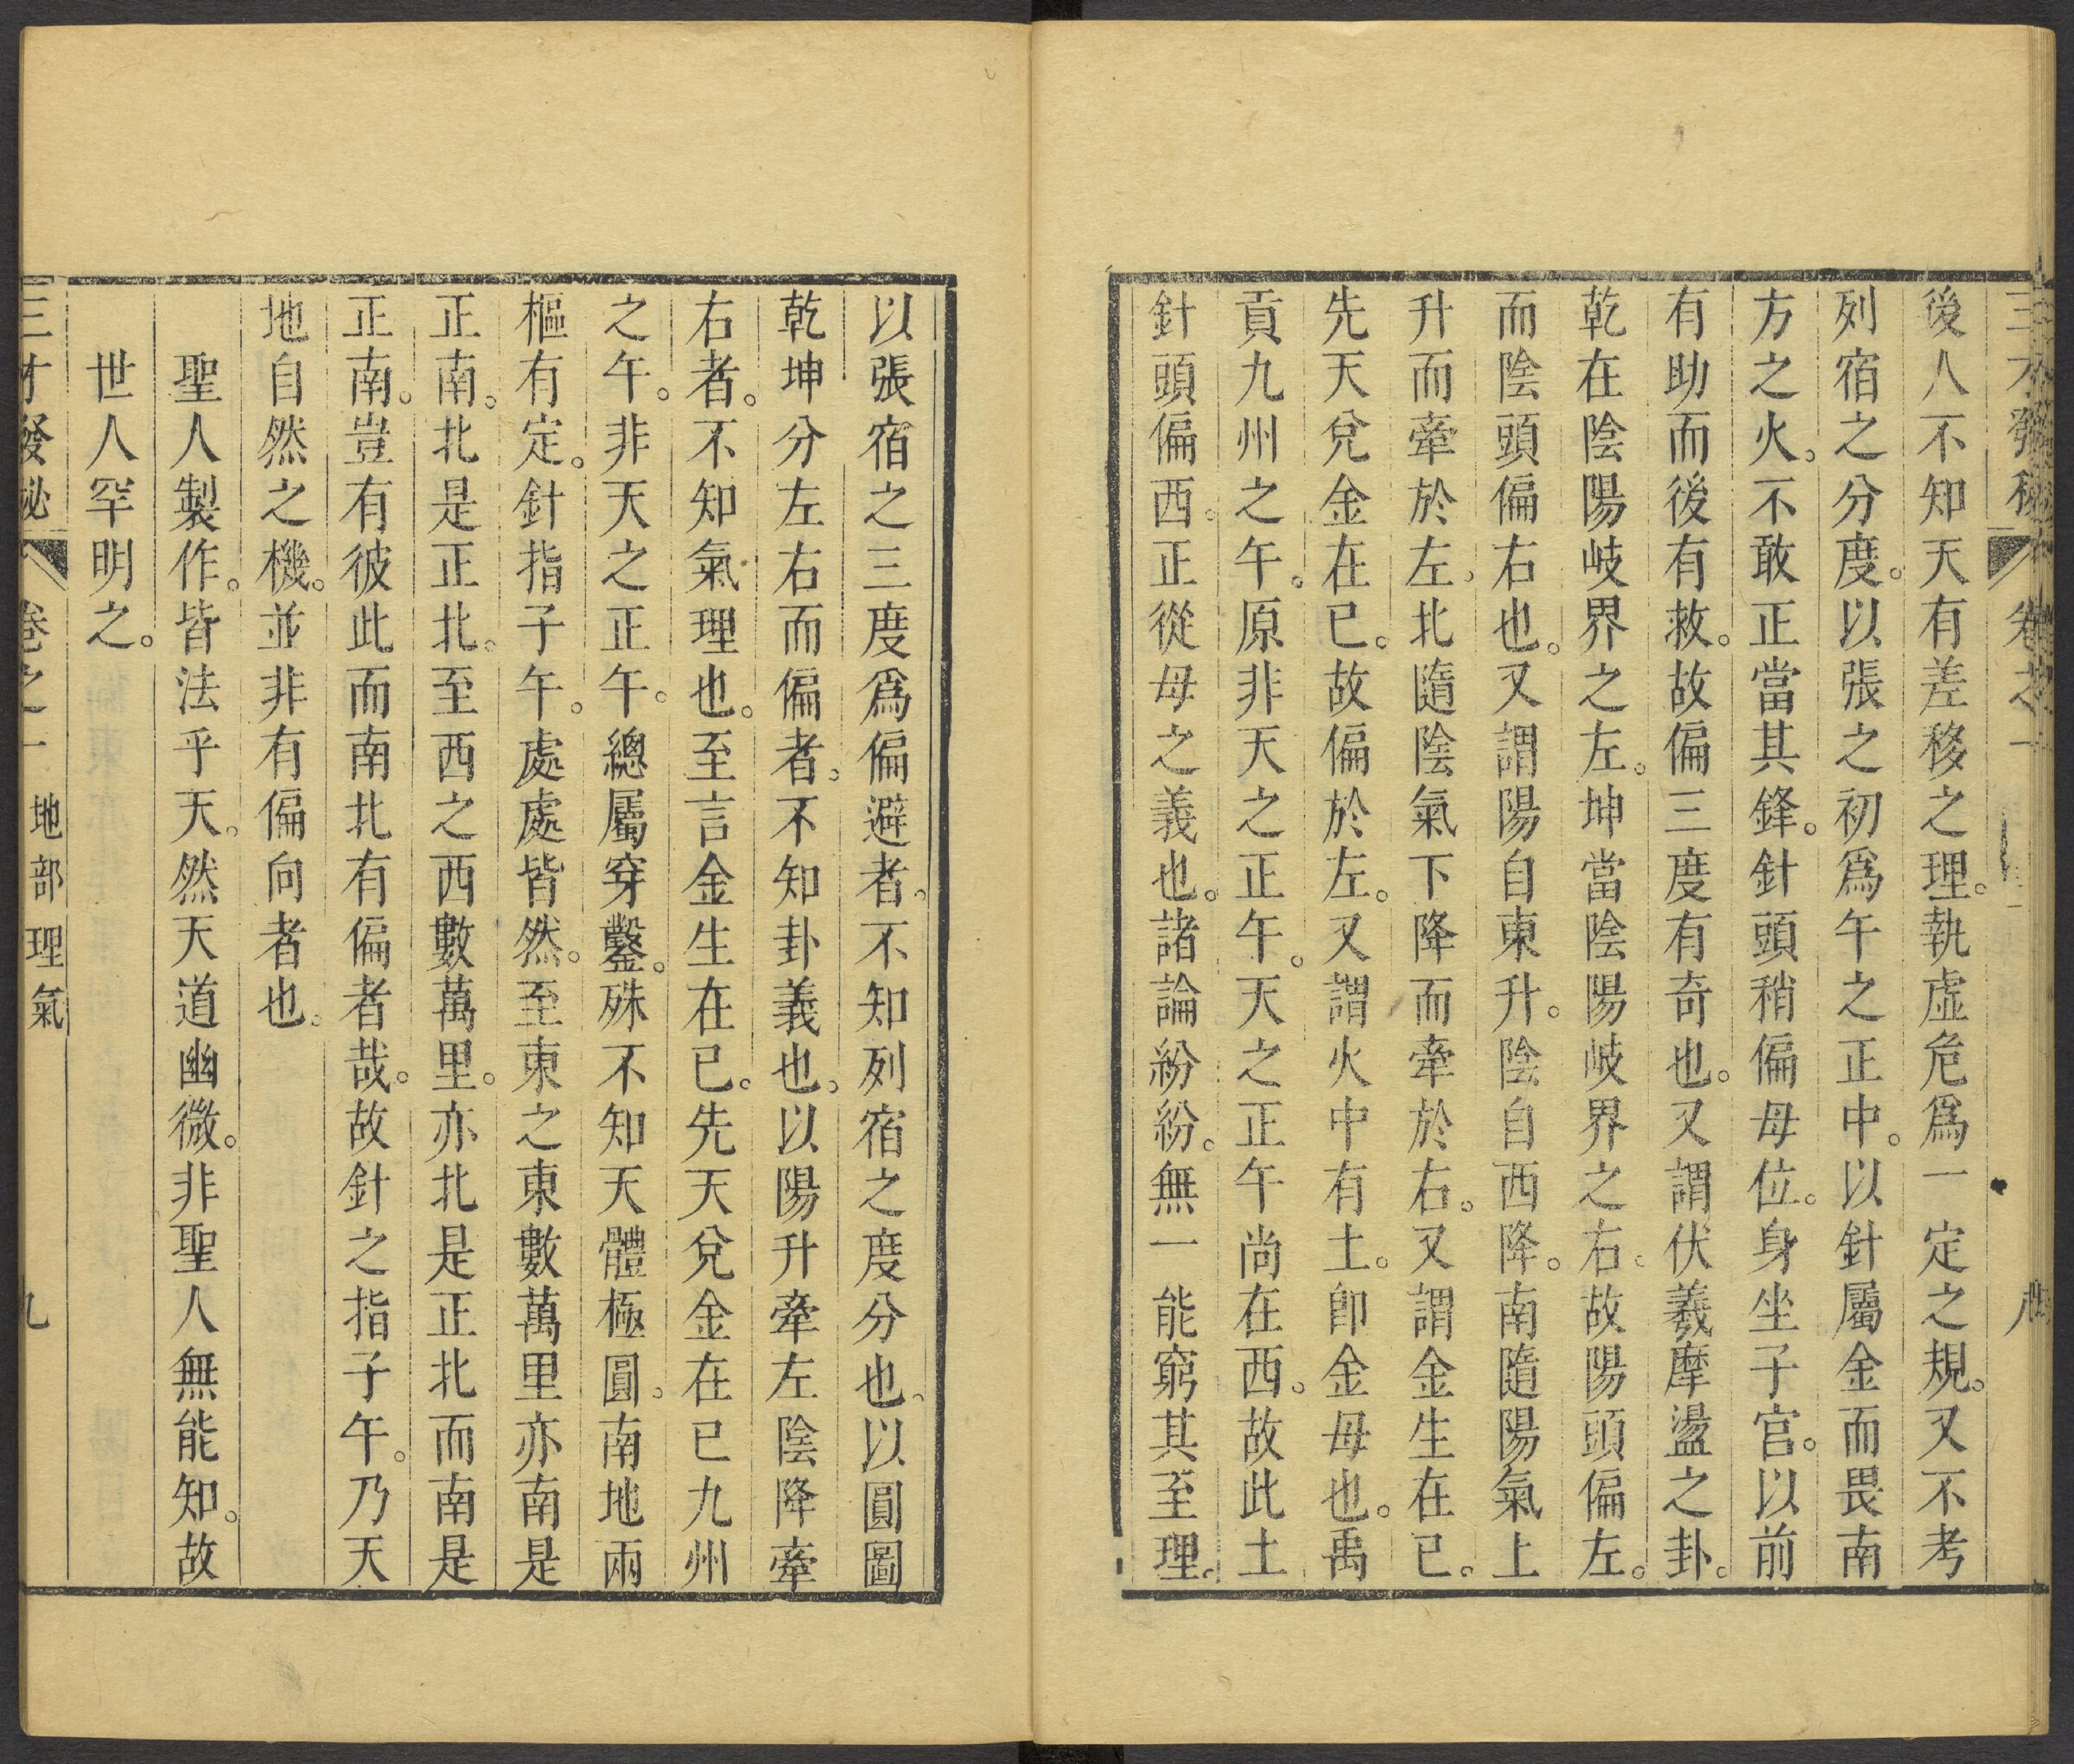 三才發秘 卷之一 八
後人不知天有差移之理。執虛危爲一定之規。又不考
列宿之分度。以張之初爲午之正中。以針屬金而畏南
方之火。不敢正當其鋒。針頭稍偏母位。身坐子宮。以前
有助而後有救。故偏三度有奇也。又謂伏羲摩盪之卦。
乾在陰陽岐界之左。坤當陰陽岐界之右。故陽頭偏左。
而陰頭偏右也。又謂陽自東升。陰自西降。南隨陽氣上
升而牽於左。北隨陰氣下降而牽於右。又謂金生在巳。
先天兌金在巳。故偏於左。又謂火中有土。卽金母也。禹
貢九州之午。原非天之正午。天之正午尚在西。故此土
針頭偏西。正從母之義也。諸論紛紛。無一能窮其至理。
以張宿之三度爲偏避者。不知列宿之度分也。以圓圖
乾坤分左右而偏者。不知卦義也。以陽升牽左陰降牽
右者。不知氣理也。至言金生在巳。先天兌金在巳九州
之午。非天之正午。總屬穿鑿。殊不知天體極圓。南北兩
樞有定。針指子午。處處皆然。至東之東數萬里亦南是
正南。北是正北。至西之西數萬里。亦北是正北而南是
正南。豈有彼此而南北有偏者哉。故針之指子午。乃天
地自然之機。並非有偏向者也。
聖人製作。皆法乎天。然天道幽微。非聖人無能知。故
世人罕明之。
三才發秘 卷之一 地部 理氣 九